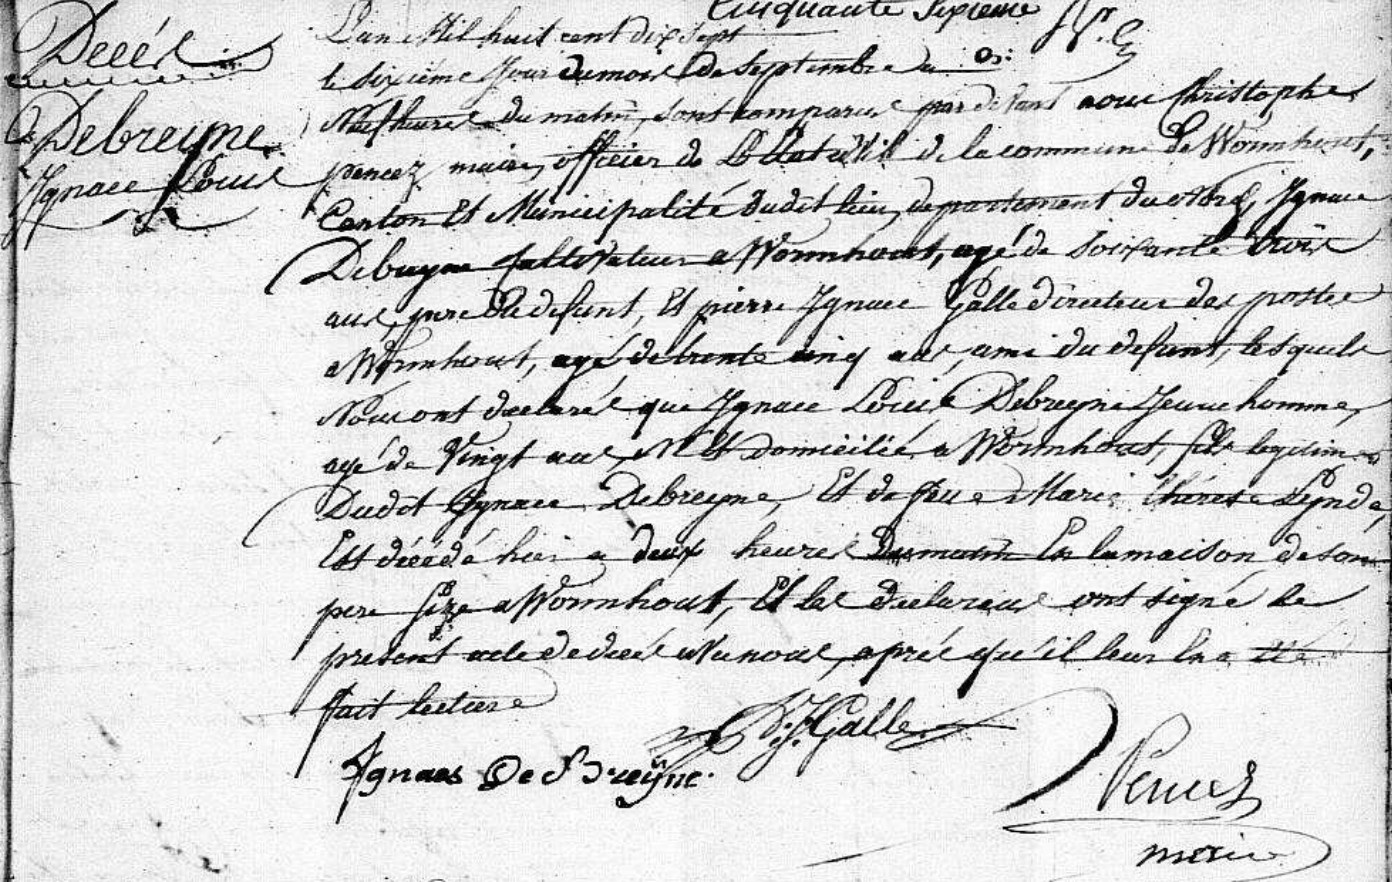 Cinquante Sixieme
Décés
L'an Mil huit cent dix Sept
le dixieme Jour du mois de Septembre a
Neuf heures du matin, sont comparus par devant nous Christophe
Debreyne
Ignace Louis
pencez maire, officier de L'Etat Civil de la commune de Wormhout,
Canton Et Municipalité dudit lieu, departement du Nord, Ignace
Debreyne Cultivateur a Wormhout, agé de soixante trois
ans, pere du defunt, Et pierre Ignace Galle directeur des postes
a Wormhout, agé de trente cinq ans, ami du defunt, lesquels
Nous ont declarés que Ignace Louis Debreyne Jeune homme,
agé de Vingt ans, Né Et domicilié a Wormhout, fils legitime
Dudit Ignace Debreyne, Et de feue Marie Thérese
Est décédé hier a deux heures du matin En la maison de son
pere a Wormhout, Et les declarans ont signé le
present acte de décés avec nous, aprés qu'il leur En a été
fait lecture
P. J. Galle
Ignaes De Breÿne.
Pencez
maire